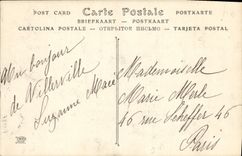 POST CARD Carte Postale POSTKARTE
BRIEFKAART POSTKAART
CARTOLINA POSTALE ОТКРЫТОЕ ПИСЬМО TARJETA POSTAL
Un bonjour
de Villerville
Suzanne Marie
Mademoiselle
Marie Merle
46 rue Scheffer 46
Paris